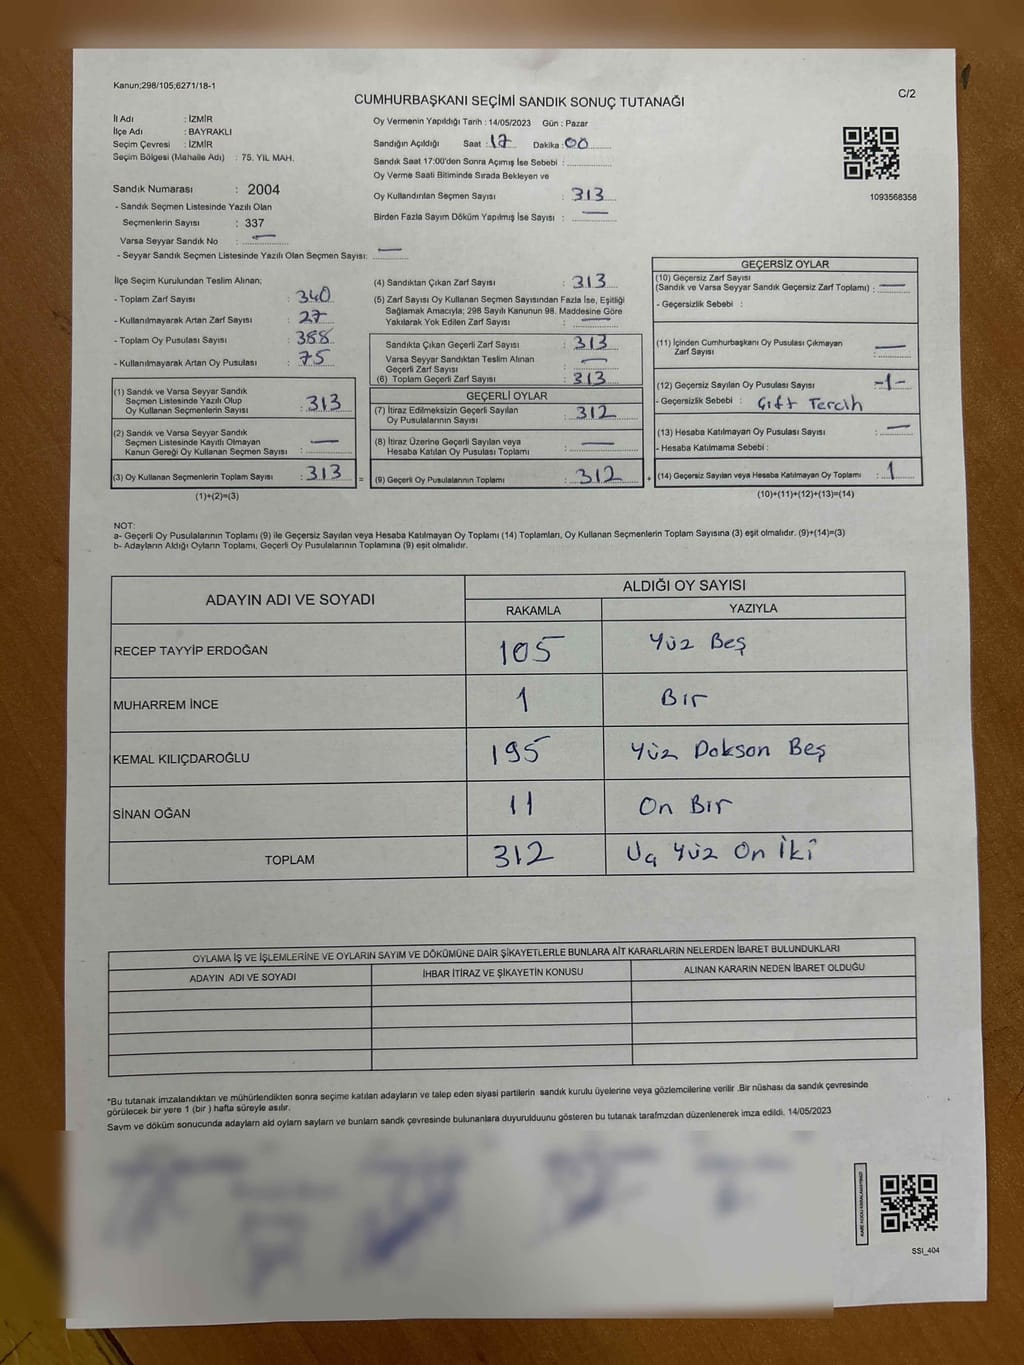 Kanun;298/105;6271/18-1
CUMHURBAŞKANI SEÇİMİ SANDIK SONUÇ TUTANAĞI
C/2
İl Adı : İZMİR
İlçe Adı : BAYRAKLI
Seçim Çevresi : İZMİR
Seçim Bölgesi (Mahalle Adı) : 75. YIL MAH.
Sandık Numarası : 2004
- Sandık Seçmen Listesinde Yazılı Olan
Seçmenlerin Sayısı : 337
Varsa Seyyar Sandık No : —
- Seyyar Sandık Seçmen Listesinde Yazılı Olan Seçmen Sayısı: —
Oy Vermenin Yapıldığı Tarih : 14/05/2023 Gün : Pazar
Sandığın Açıldığı Saat : 17 Dakika : 00
Sandık Saat 17:00'den Sonra Açımış İse Sebebi :
Oy Verme Saati Bitiminde Sırada Bekleyen ve
Oy Kullandırılan Seçmen Sayısı : 313
Birden Fazla Sayım Döküm Yapılmış İse Sayısı : —
1093568358
İlçe Seçim Kurulundan Teslim Alınan;
- Toplam Zarf Sayısı : 340
- Kullanılmayarak Artan Zarf Sayısı : 27
- Toplam Oy Pusulası Sayısı : 388
- Kullanılmayarak Artan Oy Pusulası : 75
(1) Sandık ve Varsa Seyyar Sandık
Seçmen Listesinde Yazılı Olup
Oy Kullanan Seçmenlerin Sayısı : 313
(2) Sandık ve Varsa Seyyar Sandık
Seçmen Listesinde Kayıtlı Olmayan
Kanun Gereği Oy Kullanan Seçmen Sayısı : —
(3) Oy Kullanan Seçmenlerin Toplam Sayısı : 313 =
(1)+(2)=(3)
(4) Sandıktan Çıkan Zarf Sayısı : 313
(5) Zarf Sayısı Oy Kullanan Seçmen Sayısından Fazla İse, Eşitliği
Sağlamak Amacıyla; 298 Sayılı Kanunun 98. Maddesine Göre
Yakılarak Yok Edilen Zarf Sayısı : —
Sandıkta Çıkan Geçerli Zarf Sayısı : 313
Varsa Seyyar Sandıktan Teslim Alınan
Geçerli Zarf Sayısı : —
(6) Toplam Geçerli Zarf Sayısı : 313
GEÇERLİ OYLAR
(7) İtiraz Edilmeksizin Geçerli Sayılan
Oy Pusulalarının Sayısı : 312
(8) İtiraz Üzerine Geçerli Sayılan veya
Hesaba Katılan Oy Pusulası Toplamı : —
(9) Geçerli Oy Pusulalarının Toplamı : 312 +
GEÇERSİZ OYLAR
(10) Geçersiz Zarf Sayısı
(Sandık ve Varsa Seyyar Sandık Geçersiz Zarf Toplamı) : —
- Geçersizlik Sebebi :
(11) İçinden Cumhurbaşkanı Oy Pusulası Çıkmayan
Zarf Sayısı : —
(12) Geçersiz Sayılan Oy Pusulası Sayısı : -1-
- Geçersizlik Sebebi : Çift Tercih
(13) Hesaba Katılmayan Oy Pusulası Sayısı : —
- Hesaba Katılmama Sebebi :
(14) Geçersiz Sayılan veya Hesaba Katılmayan Oy Toplamı : 1
(10)+(11)+(12)+(13)=(14)
NOT:
a- Geçerli Oy Pusulalarının Toplamı (9) ile Geçersiz Sayılan veya Hesaba Katılmayan Oy Toplamı (14) Toplamları, Oy Kullanan Seçmenlerin Toplam Sayısına (3) eşit olmalıdır. (9)+(14)=(3)
b- Adayların Aldığı Oyların Toplamı, Geçerli Oy Pusulalarının Toplamına (9) eşit olmalıdır.
ADAYIN ADI VE SOYADI
ALDIĞI OY SAYISI
RAKAMLA YAZIYLA
RECEP TAYYİP ERDOĞAN 105 Yüz Beş
MUHARREM İNCE 1 Bir
KEMAL KILIÇDAROĞLU 195 Yüz Dokson Beş
SİNAN OĞAN 11 On Bir
TOPLAM 312 Üç Yüz On İki
OYLAMA İŞ VE İŞLEMLERİNE VE OYLARIN SAYIM VE DÖKÜMÜNE DAİR ŞİKAYETLERLE BUNLARA AİT KARARLARIN NELERDEN İBARET BULUNDUKLARI
ADAYIN ADI VE SOYADI İHBAR İTİRAZ VE ŞİKAYETİN KONUSU ALINAN KARARIN NEDEN İBARET OLDUĞU
*Bu tutanak imzalandıktan ve mühürlendikten sonra seçime katılan adayların ve talep eden siyasi partilerin sandık kurulu üyelerine veya gözlemcilerine verilir .Bir nüshası da sandık çevresinde
görülecek bir yere 1 (bir ) hafta süreyle asılır.
Sayım ve döküm sonucunda adayların ald oyların sayların ve bunların sandk çevresinde bulunanlara duyurulduunu gösteren bu tutanak tarafmzdan düzenlenerek imza edildi. 14/05/2023
SSI_404